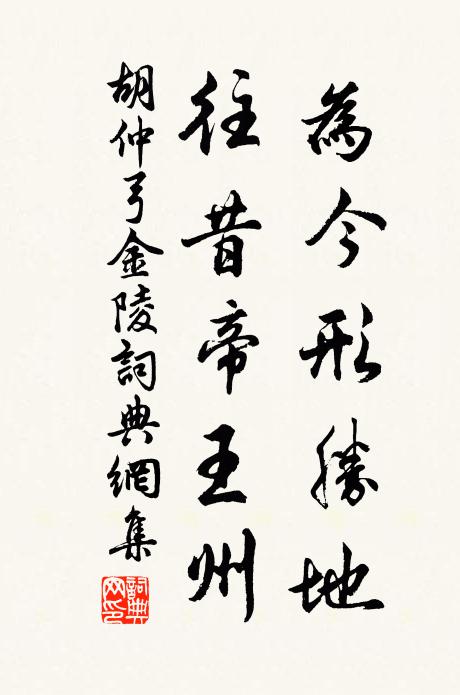 為今形勝地
往昔帝王州
胡仲弓金陵詞典網集
詞典网印